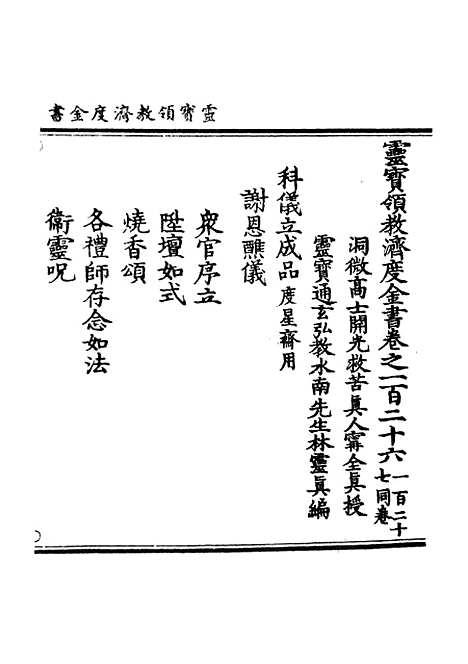 靈寳領教濟度金書
靈寶領教濟度金書卷之一百二十六一百二十七同卷
洞微高士開光救苦眞人甯全眞授
靈寶通玄弘教水南先生林靈眞編
科儀立成品度星齋用
謝恩醮儀
衆官序立
陞壇如式
燒香頌
各禮師存念如法
衛靈呪